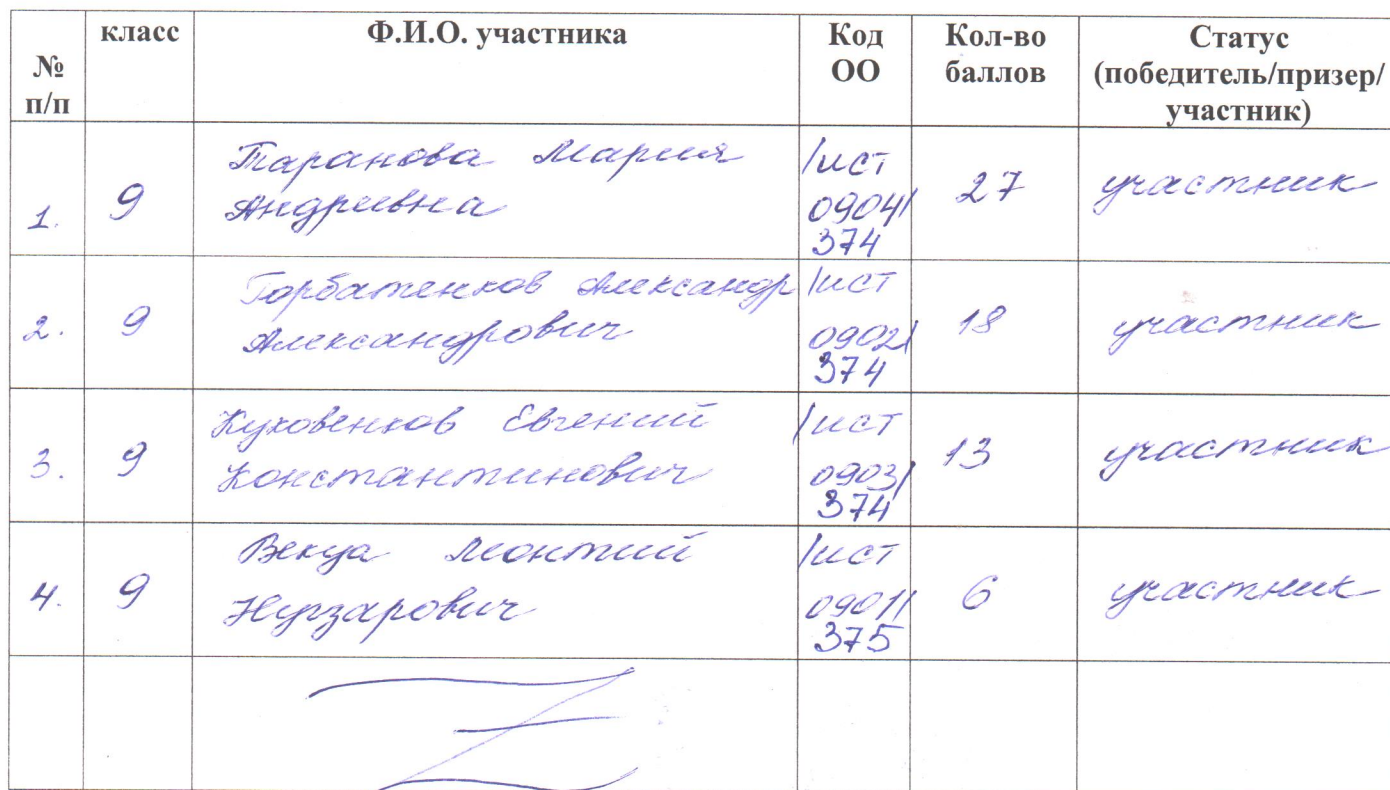 № п/п класс Ф.И.О. участника Код ОО Кол-во баллов Статус (победитель/призер/участник)
1. 9 Таранова Мария Андреевна /ист 0904/ 374 27 участник
2. 9 Горбатенков Александр Александрович /ист 0902/ 374 18 участник
3. 9 Куховенков Евгений Константинович /ист 0903/ 374 13 участник
4. 9 Векуа Леонтий Нугзарович /ист 0901/ 375 6 участник